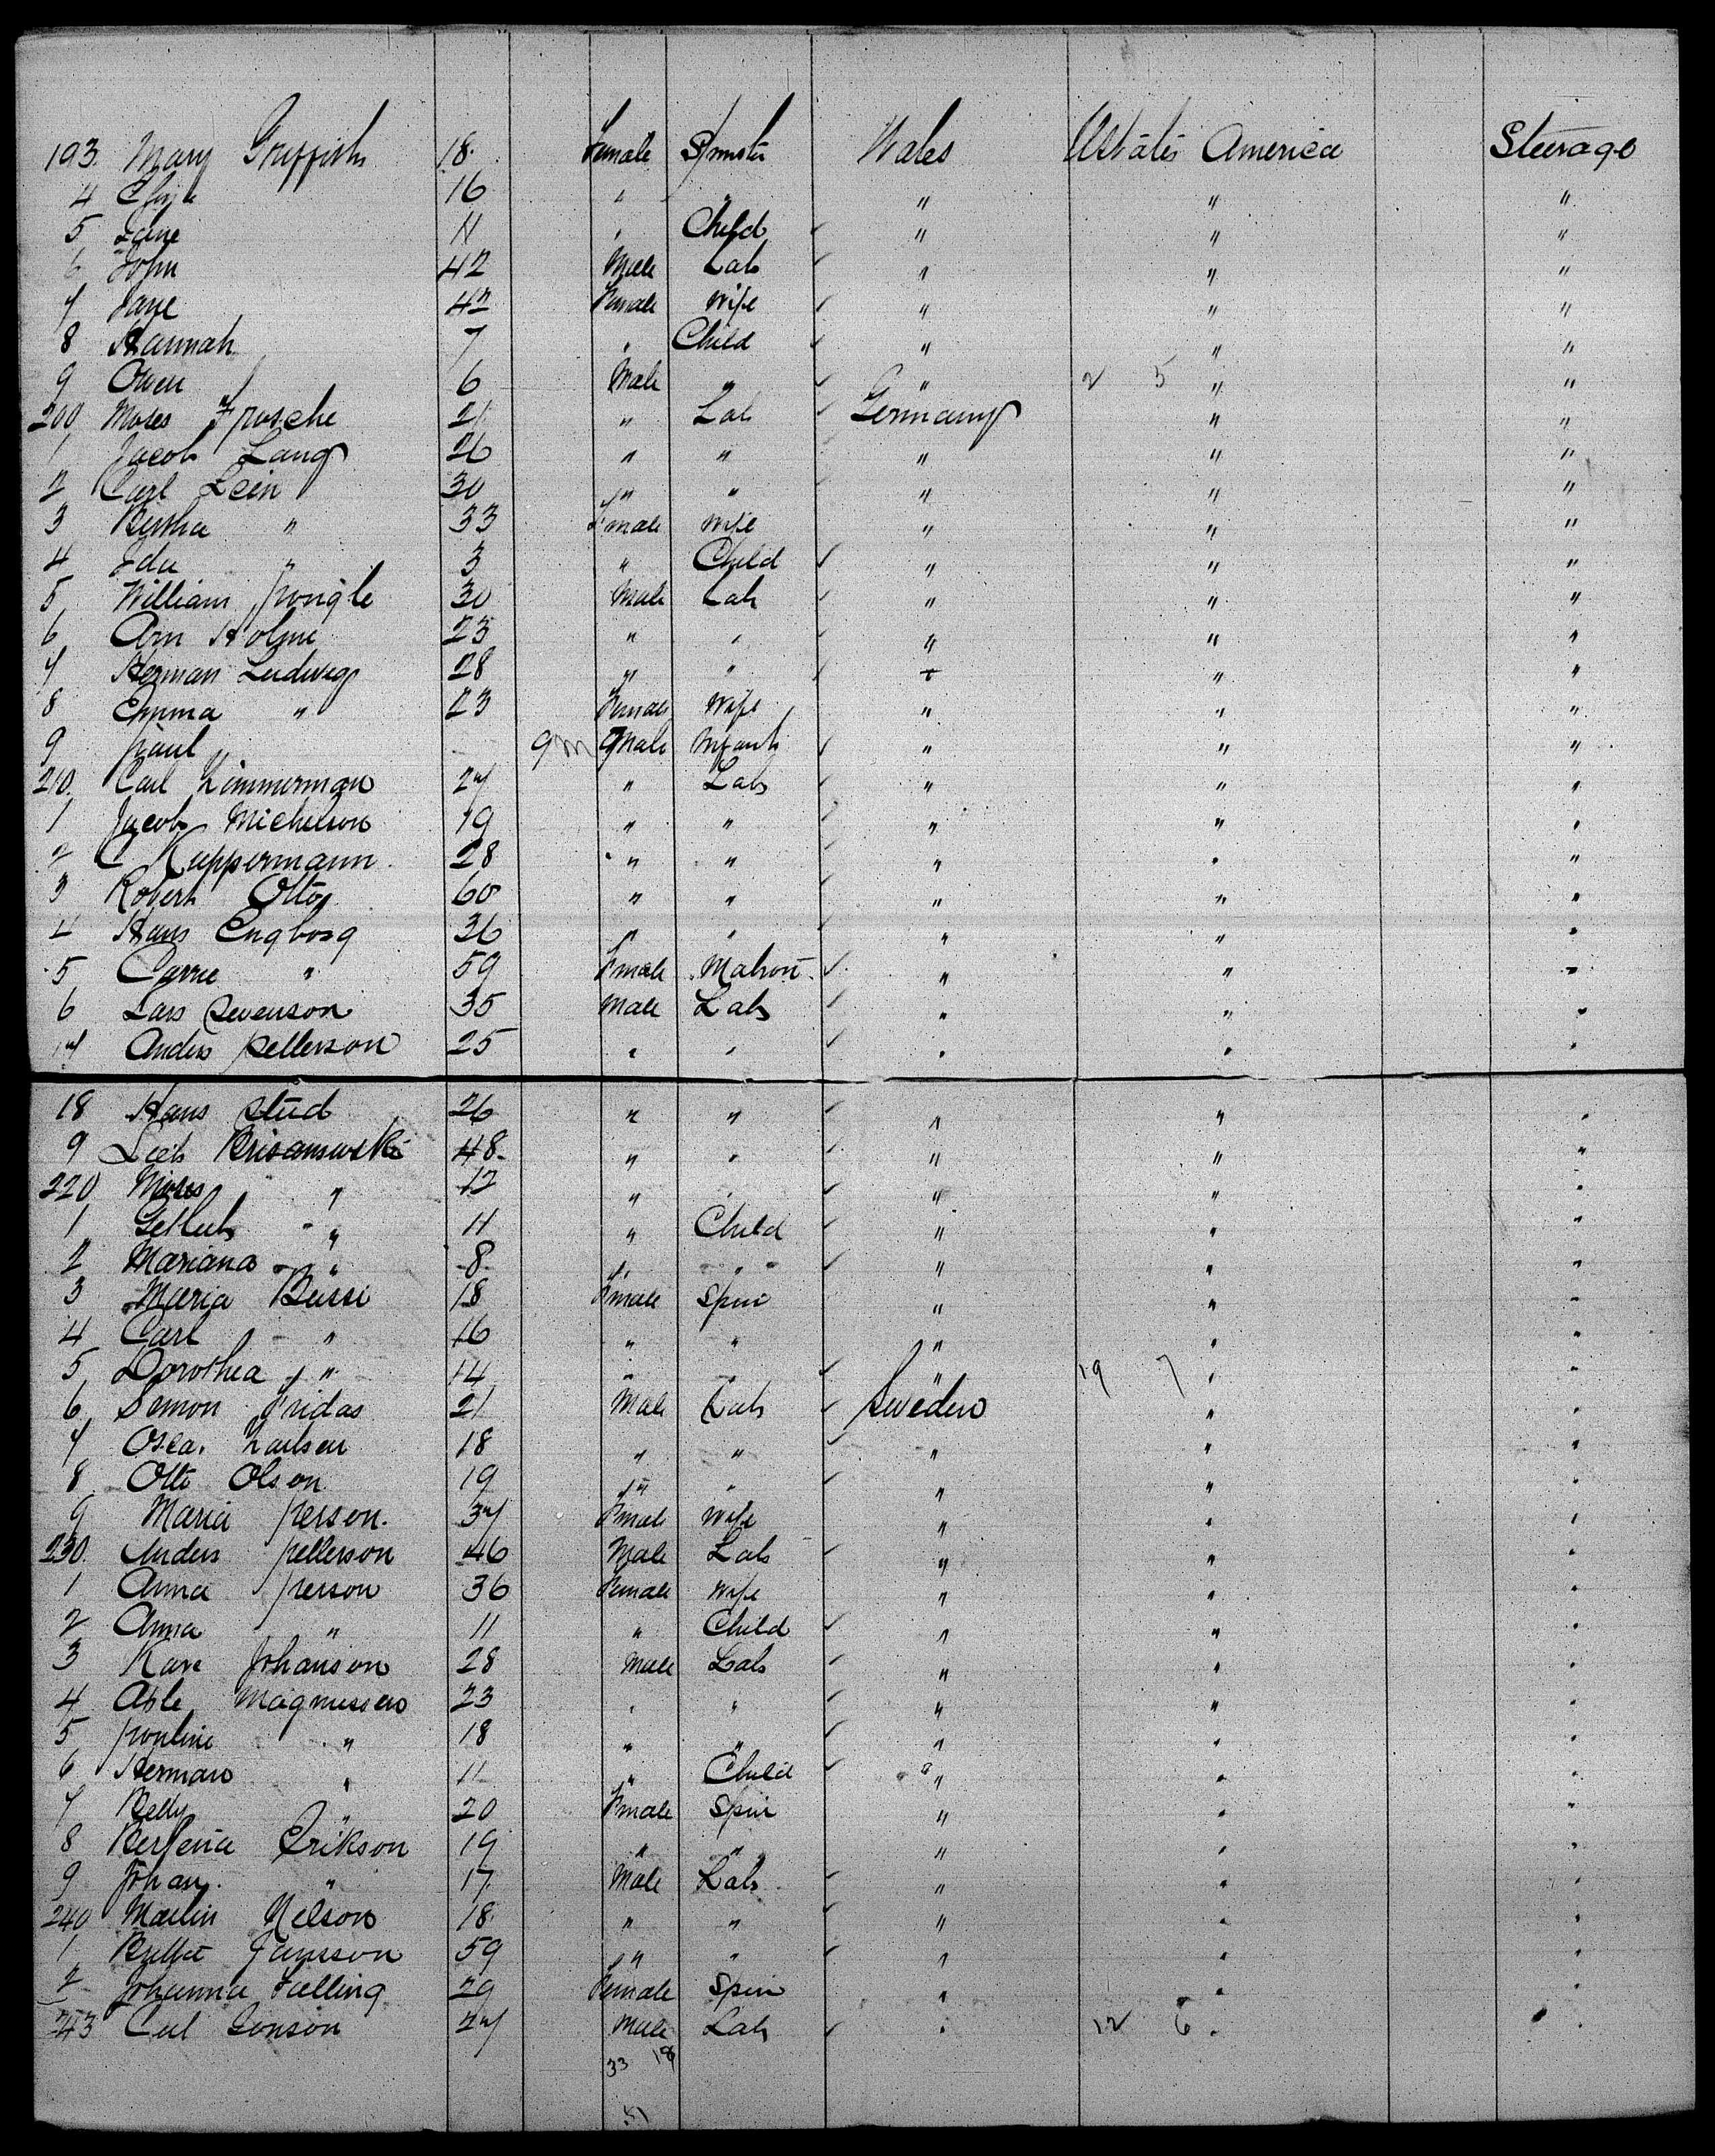 193 Mary Griffith 18 Female Spinster Wales U States America Steerage
4 16 " " " " "
5 Jane 11 " Child " " "
6 John 42 Male Lab " " "
7 Jane 42 Female Wife " " "
8 Hannah 7 " Child " " "
9 Owen 6 Male " " 2 5 " "
200 Moses Frosche 21 " Lab Germany " "
1 Jacob Lang 26 " " " " "
2 Carl Lein 30 " " " " "
3 Bertha " 33 Female Wife " " "
4 Ida " 3 " Child " " "
5 William Pongle 30 Male Lab " " "
6 Arn Holme 23 " " " " "
7 Herman Ludwig 28 " " " " "
8 Emma " 23 Female Wife " " "
9 Paul " 9m Male Infant " " "
210 Carl Zimmerman 27 " Lab " " "
1 Jacob Michelson 19 " " " " "
2 C Kuppermann 28 " " " " "
3 Robert Otto 60 " " " " "
4 Hans Engborg 36 " " " " "
5 Carrie " 59 Female Matron " " "
6 Lars Swenson 35 Male Lab " " "
17 Anders Petterson 25 " " " " "
18 Hans Stud 26 " " " " "
9 Leib Brisanswski 48 " " " " "
220 Moses " 12 " " " " "
1 " 11 " Child " " "
2 Mariana " 8 " " " " "
3 Maria Bussi 18 Female Spin " " "
4 Carl " 16 " " " " "
5 Dorothea " 14 " " " 19 7 " "
6 Simon Fridas 21 Male Lab Sweden " "
7 Osca. Carlsen 18 " " " " "
8 Otto Olson 19 " " " " "
9 Maria Person 37 Female Wife " " "
230 Anders Petterson 46 Male Lab " " "
1 Anna Person 36 Female Wife " " "
2 Anna " 11 " Child " " "
3 Kare Johanson 28 Male Lab " " "
4 Able Magnussen 23 " " " " "
5 Pouline " 18 " " " " "
6 Herman " 11 " Child " " "
7 Betty " 20 Female Spin " " "
8 Erikson 19 " " " " "
9 Johan " 17 Male Lab " " "
240 Martin Nelson 18 " " " " "
1 Jansson 59 " " " " "
2 Johanna Falling 29 Female Spin " " "
243 Carl Jonson 27 Male Lab " 12 6 " "
33 18
51